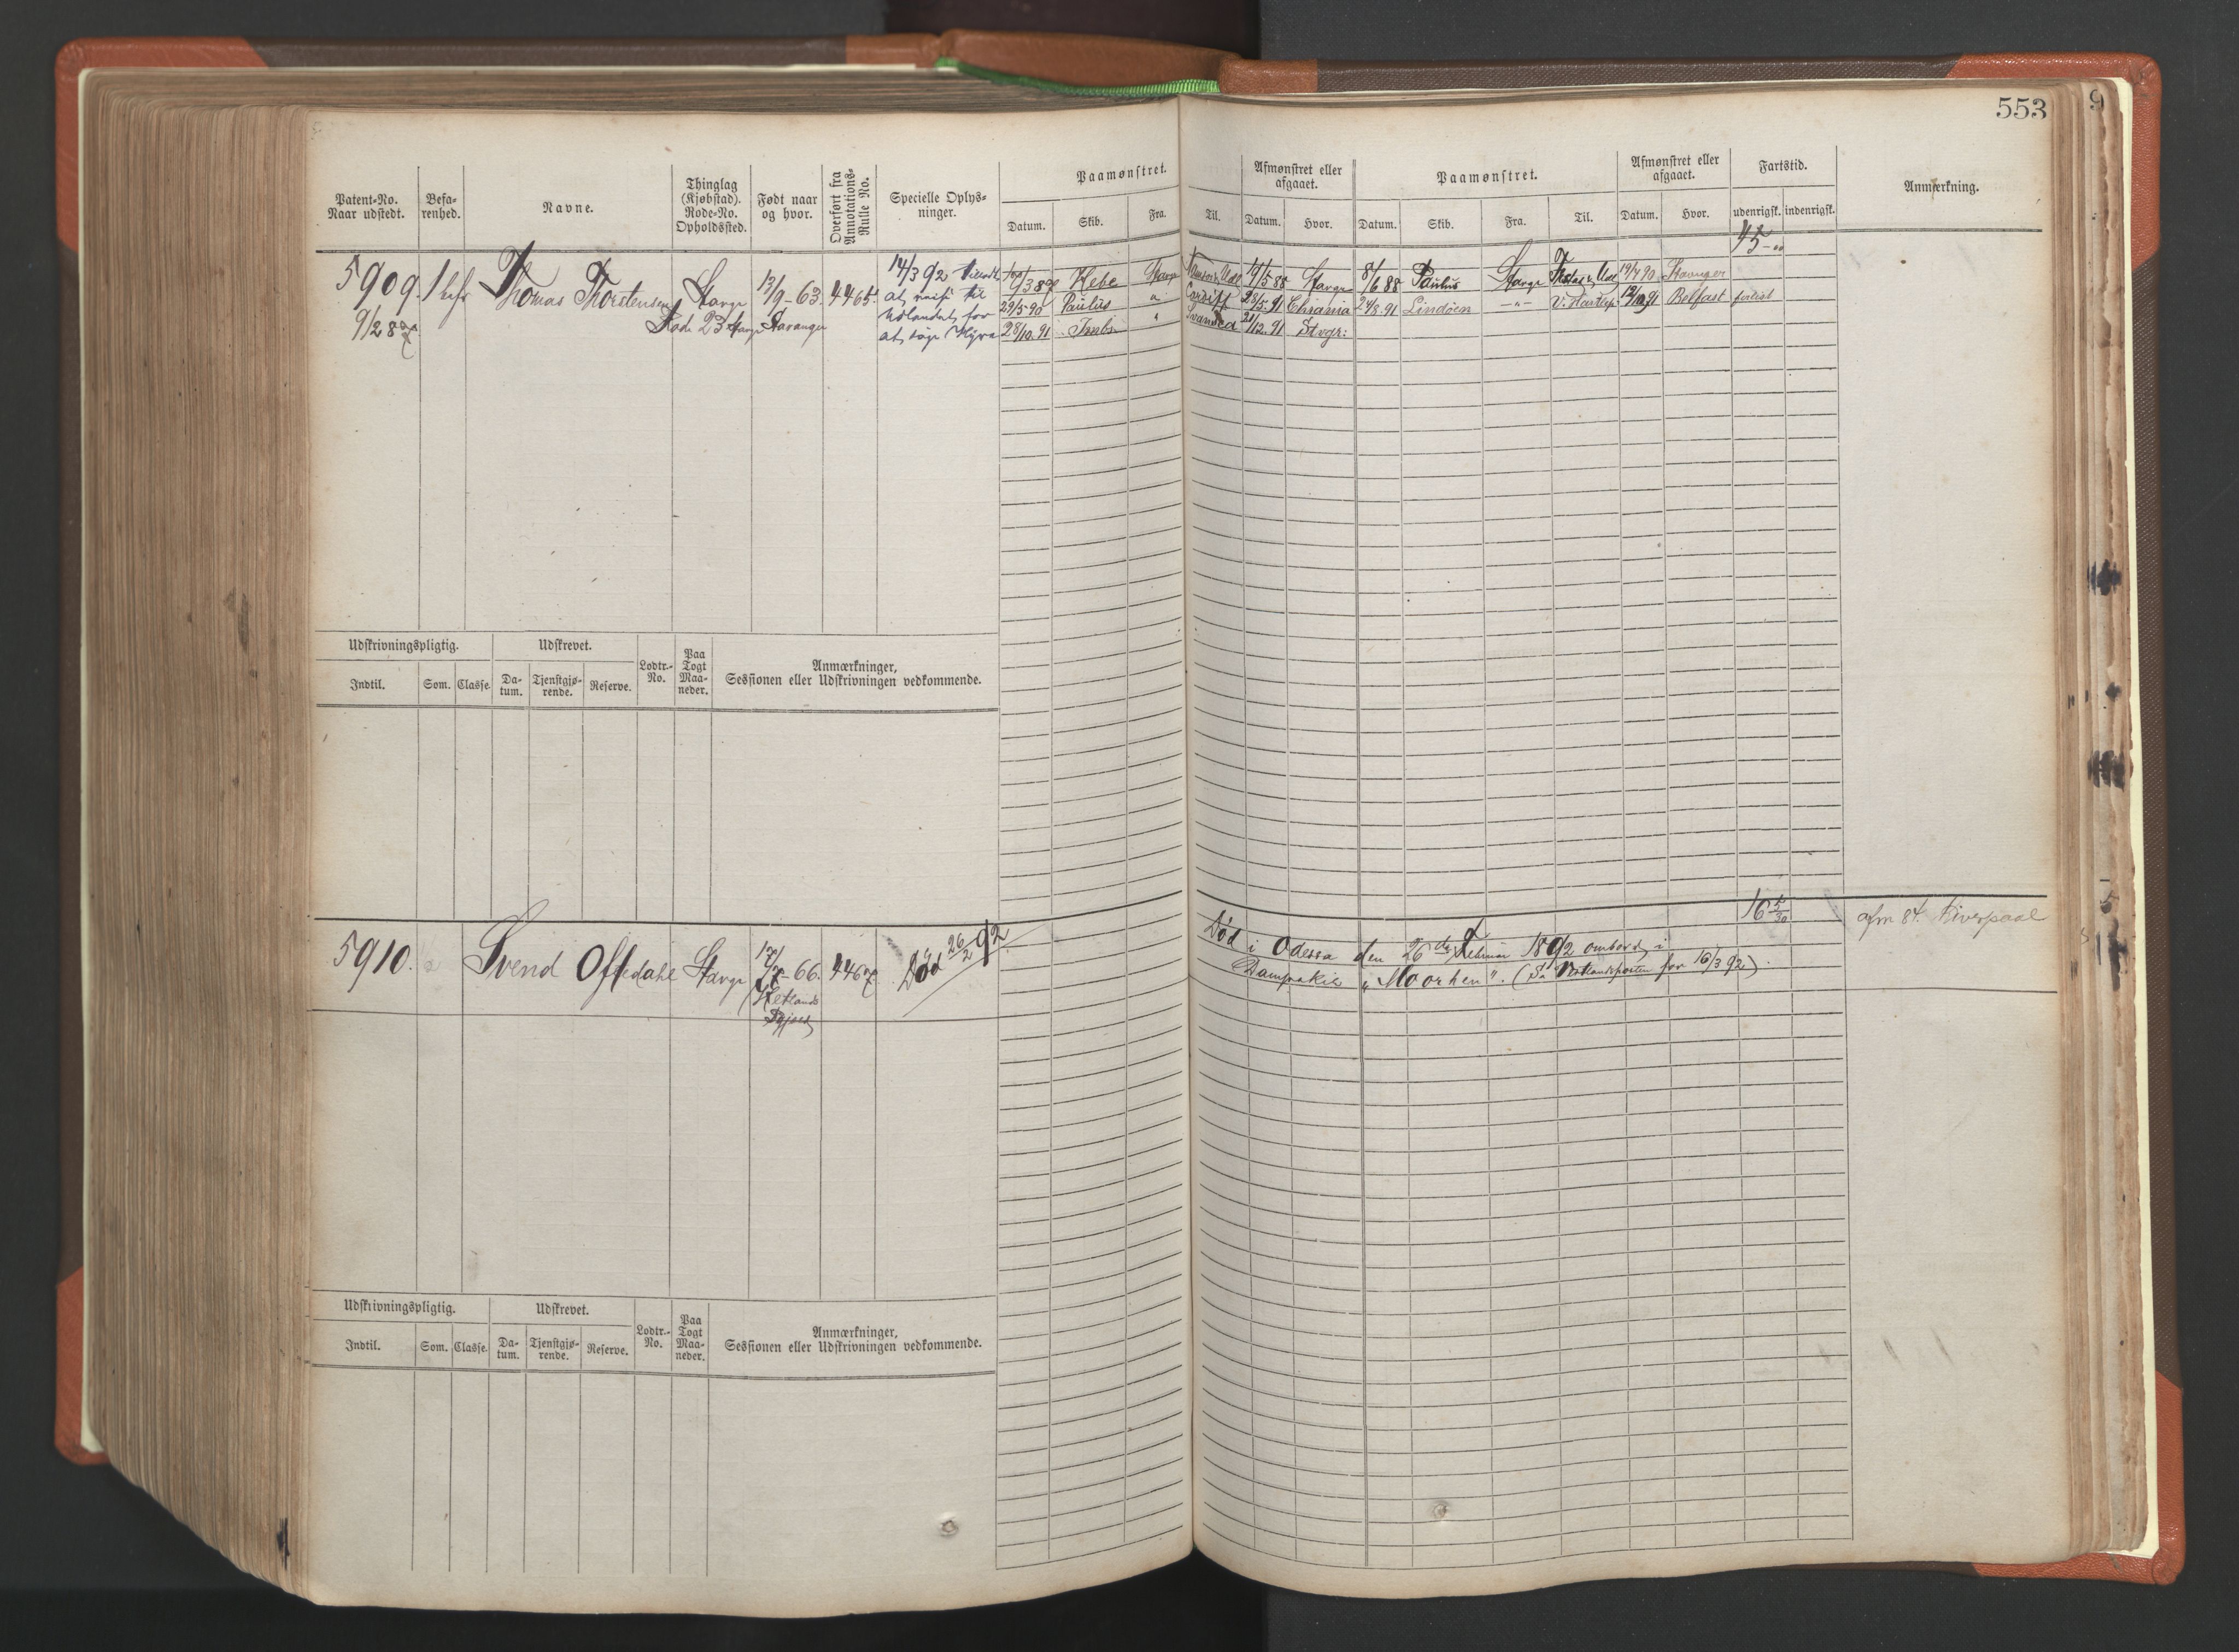 553
9
Patent-No.
Naar udstedt.
Befa-
renhed.
Navne.
Thinglag
(Kjøbstad).
Rode-No.
Opholdssted.
Født naar
og hvor.
Overført fra
Annotations-
Rulle No.
Specielle Oplys-
ninger.
Paamønstret.
Datum. Skib. Fra. Til.
Afmønstret eller
afgaaet.
Datum. Hvor.
Paamønstret.
Datum. Skib. Fra. Til.
Afmønstret eller
afgaaet.
Datum. Hvor.
Fartstid.
udenrigsk. indenrigsk.
Anmærkning.
45 - "
5909. Thomas Thorstensen Stavgr 13/9-63. 4465.
9/2 87. Rode 23 Stavgr Stavanger
14/3 92 tilladt
at reise til
Udlandet for
at søge Hyre
Hebe Stavgr Udl 19/5 88 Stavgr 8/6 88 Paulus Stavgr Udl 90 Stavanger
29/5 90 Paulus " Cardiff 28/5.91 Chrania 24/8.91 Lindöen -"- V. Hartlep. Belfast forlist
28/10.91 " Swansea 21/12.91 Stvgr:
Udskrivningspligtig.
Udskrevet.
Indtil. Som. Classe.
Da-
tum.
Tjenstgjø-
rende.
Reserve.
Lodtr.-
No.
Paa
Togt
Maa-
neder.
Anmærkninger,
Sessionen eller Udskrivningen vedkommende.
16 5/30
afm 84 Liverpool
5910. Svend Offedahl Stavgr 66. 4467. Død 26/2 92
Hetlands
Død i Odessa den 26de Februar 1892 ombord i
Dampskib "Moorhen". (Se Vestlandsposten for 16/3 92).
Udskrivningspligtig.
Udskrevet.
Indtil. Som. Classe.
Da-
tum.
Tjenstgjø-
rende.
Reserve.
Lodtr.-
No.
Paa
Togt
Maa-
neder.
Anmærkninger,
Sessionen eller Udskrivningen vedkommende.